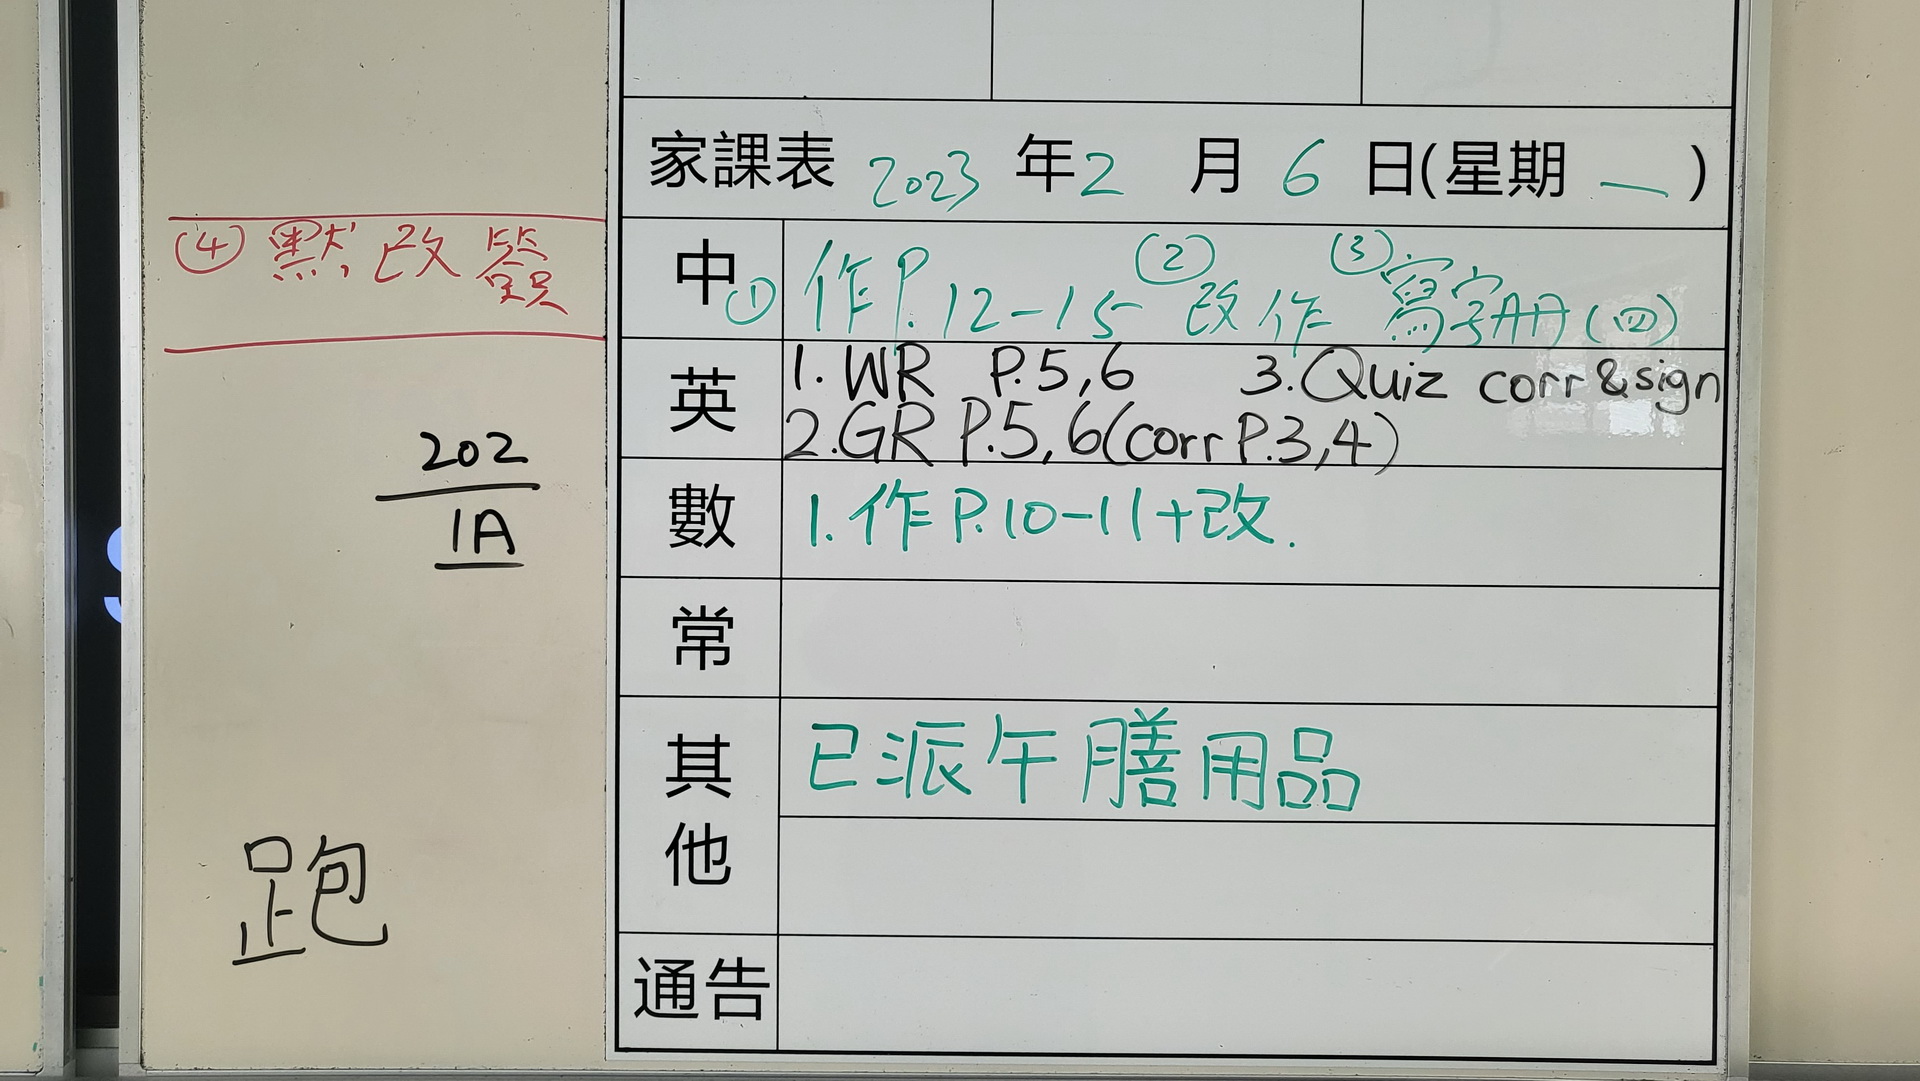 家課表 2023 年 2 月 6 日(星期 一 )
中 ① 作P.12-15 ② 改作 ③ 寫字冊(四)
④ 默改簽
英 1. WR P.5,6 3. Quiz corr & sign
2. GR P.5,6 (corr P.3,4)
數 1. 作P.10-11+改.
常
其他 已派午膳用品
通告
202
1A
跑